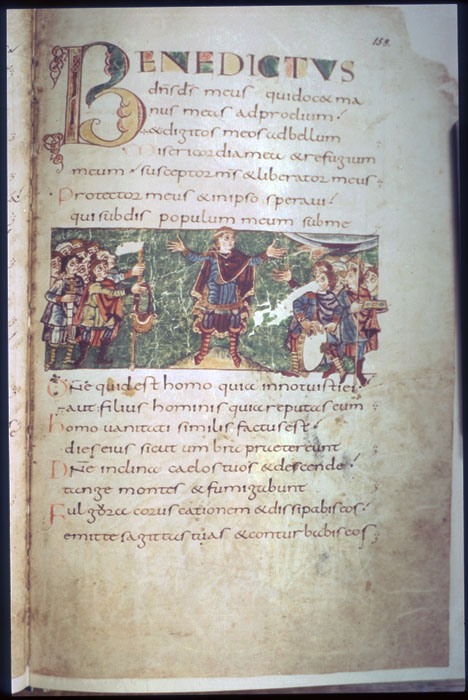 158.
BENEDICTVS
dn̄s d̄s meus qui doc& ma
nus meas ad proelium
& digitos meos ad bellum
Misericordia mea & refugium
meum susceptor m̄s & liberator meus
Protector meus & in ipso speraui
qui subdis populum meum sub me
Dn̄e quid est homo quia innotuisti ei
aut filius hominis quia reputas eum
homo uanitati similis factus est
dies eius sicut umbra praetereunt
Dn̄e inclina caelos tuos & descende
tange montes & fumigabunt
Fulgora coruscationem & dissipabis eos
emitte sagittas tuas & conturbabis eos